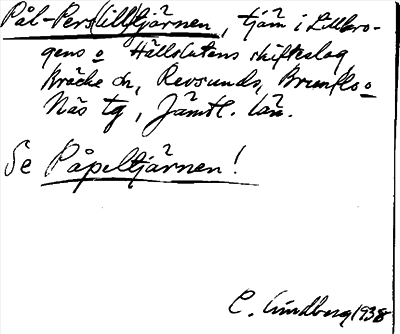 Pål-Pers(lill)tjärnen, tjärn i Lillbro-
gens o Hällslåtens skifteslag
Bräcke sn, Revsunds, Brunflo o
Näs tg, Jämtl. län.
Se Påpeltjärnen!
C. Lindberg 1938